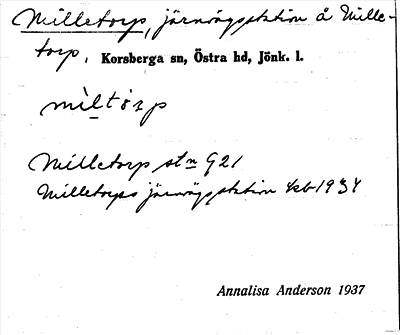 Milletorp, järnvägsstation å Mille-
torp, Korsberga sn, Östra hd, Jönk. l.
mìltòrp
Milletorp stn G21
Milletorps järnvägsstation kb 1934
Annalisa Anderson 1937